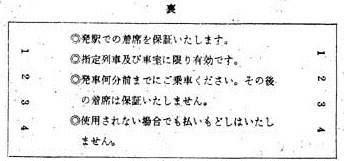 裏
◎発駅での着席を保証いたします。
◎指定列車及び車室に限り有効です。
◎発車何分前までにご乗車ください。その後
の着席は保証いたしません。
◎使用されない場合でも払いもどしはいたし
ません。
1
2
3
4
1
2
3
4